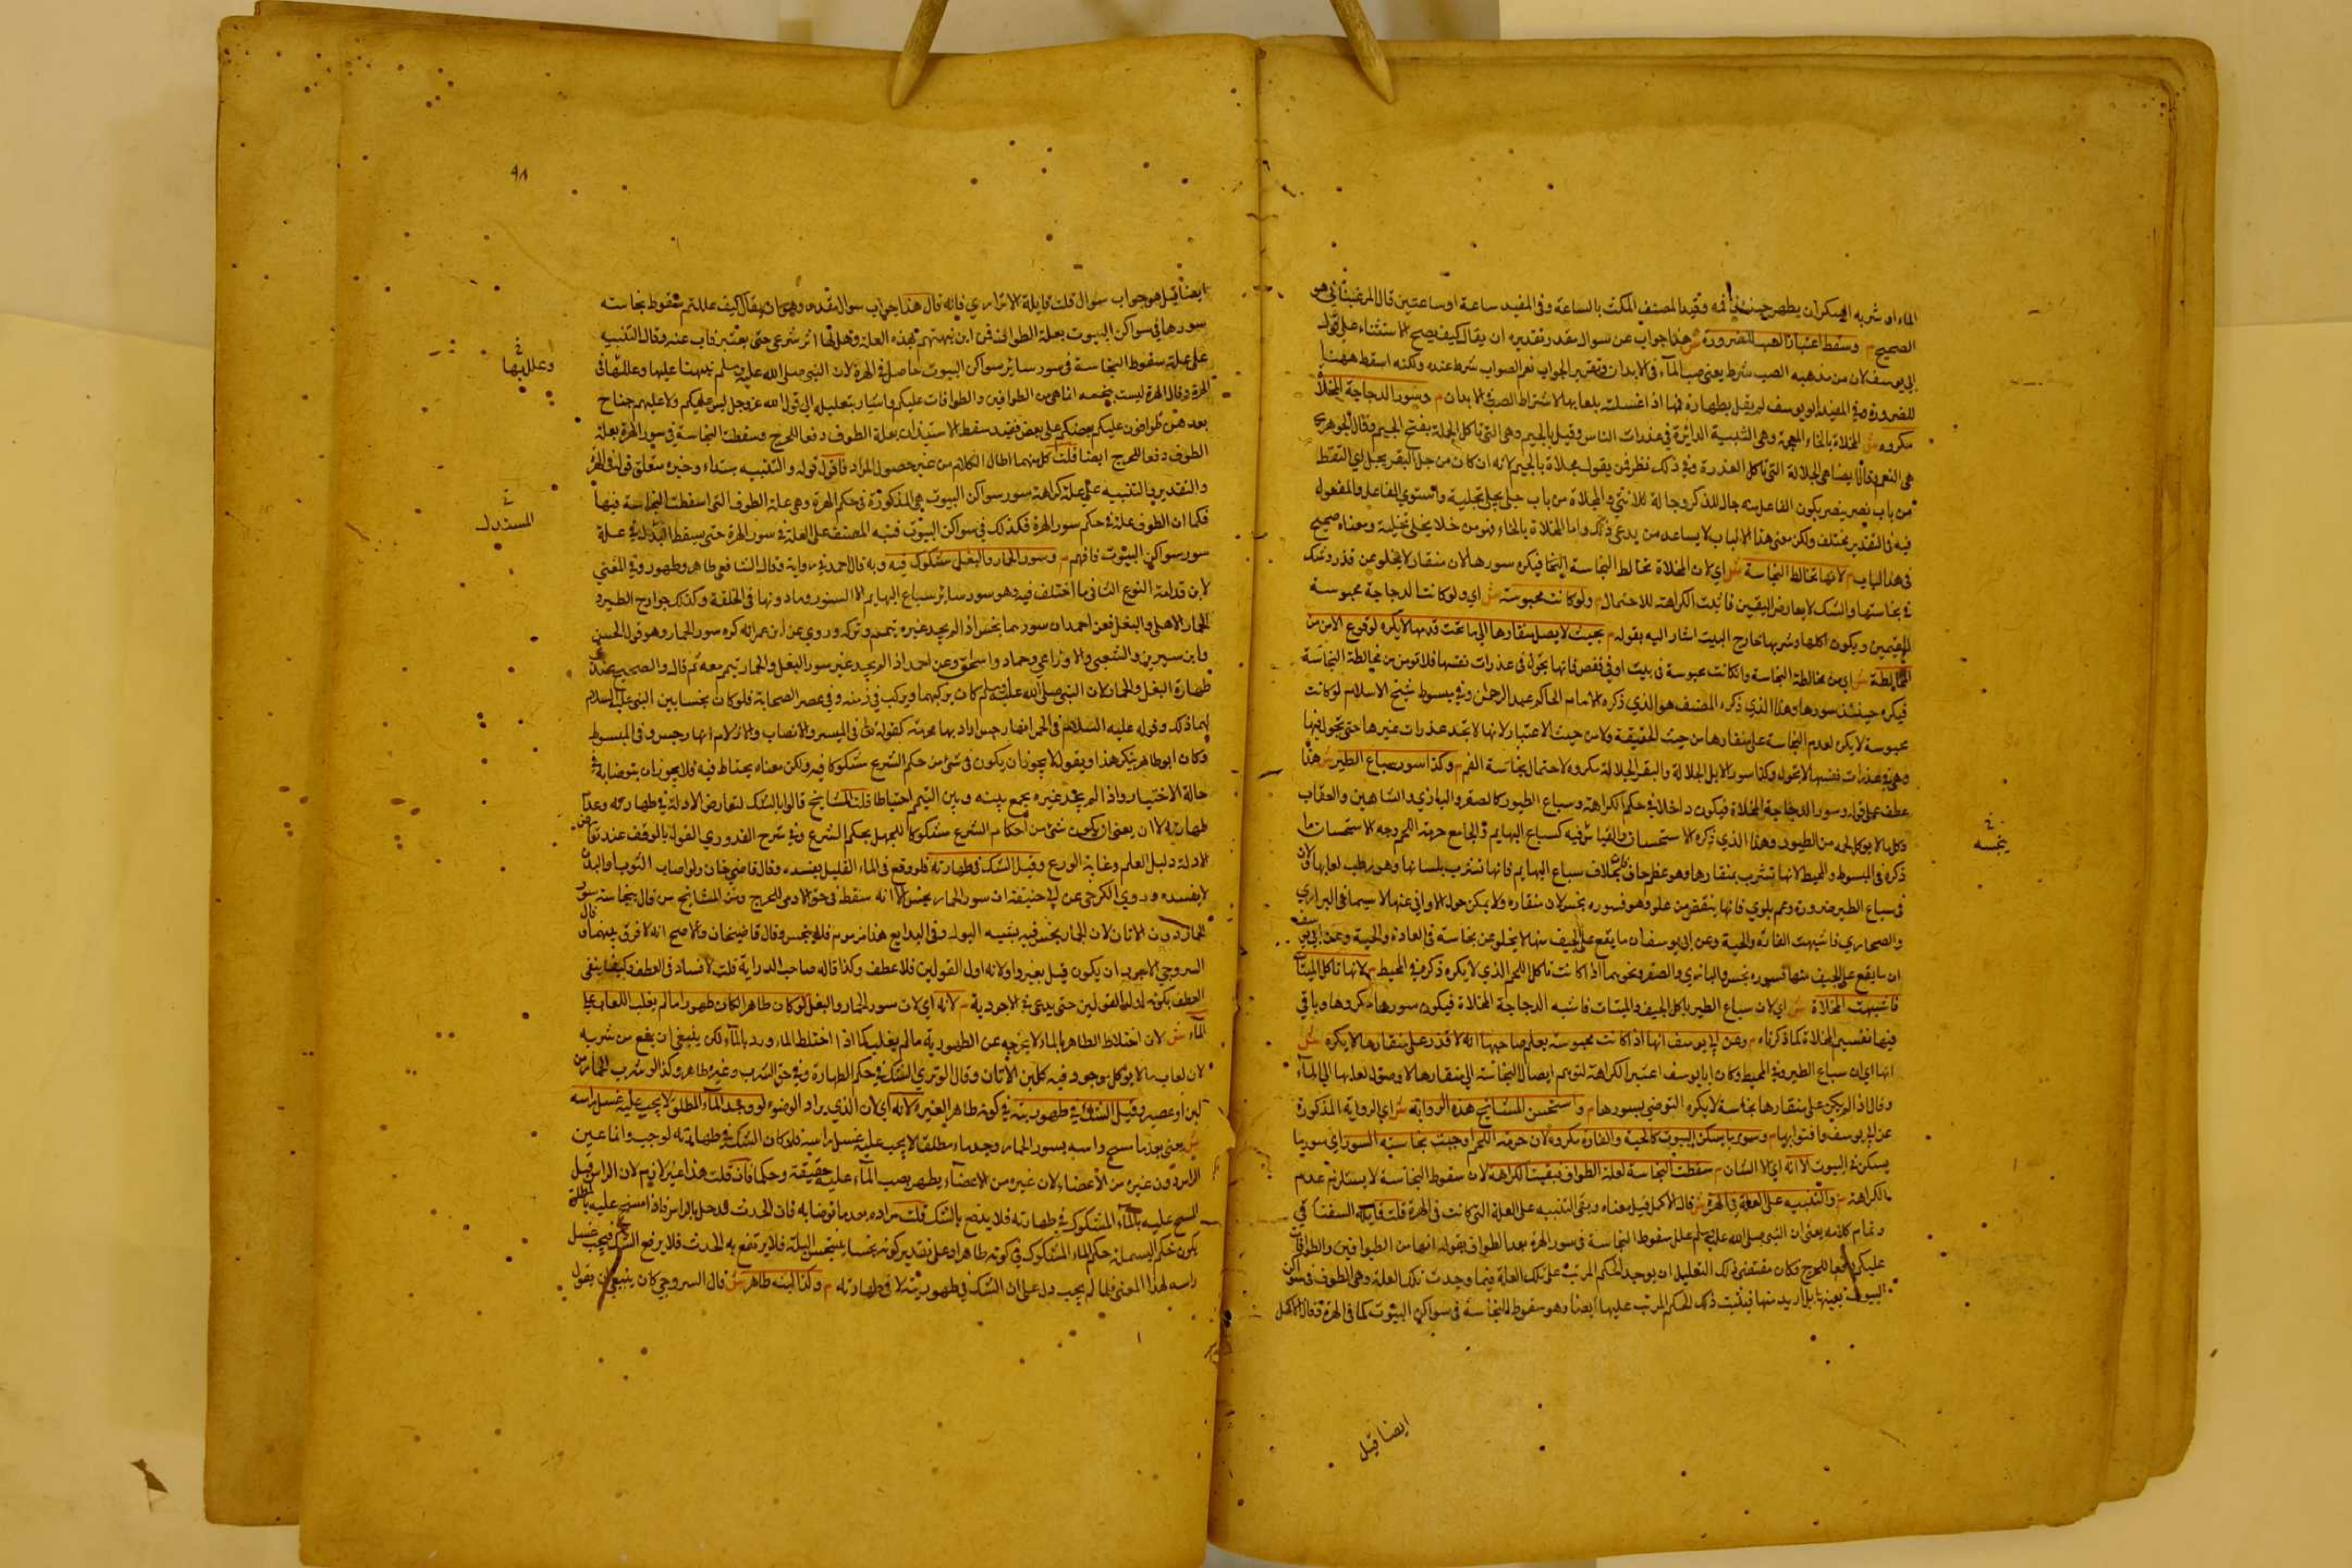 الماء او شربه السكران يطهر حينئذ فمه وقيد المصنف المكث بالساعة وفي المفيد ساعة او ساعتين قال المرغيناني هو
الصحيح م وسقط اعتبار الصب للضرورة ش هذا جواب عن سوال مقدر تقديره ان يقال كيف يصح الاستثناء على قول
ابي يوسف لان من مذهبه الصب شرط يعني صب الماء في الابدان وتقرير الجواب نعم الصواب شرط عنده ولكنه اسقط ههنا
للضرورة وفي المفيد ابو يوسف لم يقل بطهارة فمها اذا غسلت بلعابها لاشتراط الصب في الابدان م وسور الدجاجة المخلاة
مكروه ش المخلاة بالخاء المعجمة وهي المسيبة الدائرة في عذرات الناس وقيل بالجيم وهي التي تاكل الجلة بفتح الجيم وقال الجوهري
هي البعر وقال ايضا هي الجلالة التي تاكل العذرة وفي ذلك نظر فمن يقول مجلاة بالجيم لانه ان كان من جل البعر يجل اي التقط
من باب نصر ينصر يكون الفاعل منه جال للذكر وجالة للانثى والمجلاة من باب جلى يجلي تجلية واستوى الفاعل والمفعول
فيه في التقدير مختلف ولكن معنى هذا الباب لا يساعد من يدعي ذلك واما المخلاة بالخاء فهو من خلا يخلي تخلية ومعناه صحيح
في هذا الباب م لانها تخالط النجاسة ش اي لان المخلاة تخالط النجاسة فيكره سورها لان منقارها لا يخلو عن قذر وشك
في نجاستها والشك لا يعارض اليقين فاثبت الكراهة للاحتمال م ولو كانت محبوسة ش اي ولو كانت الدجاجة محبوسة
ويكون اكلها وشربها خارج البيت اشار اليه بقوله م بحيث لا يصل منقارها الى ما تحت قدمها لا يكره لوقوع الامن من
المخالطة ش اي من مخالطة النجاسة وان كانت محبوسة في بيت او في قفص فانها تجول في عذرات نفسها فلا تؤمن من مخالطة النجاسة
فيكره حينئذ سورها وهذا الذي ذكره المصنف هو الذي ذكره الامام الحاكم عبد الرحمن وفي مبسوط شيخ الاسلام لو كانت
محبوسة لا يكره لعدم النجاسة على منقارها من حيث الحقيقة ولا من حيث الاعتبار لانها لا تجد عذرات غيرها حتى تجول فيها
وهي في عذرات نفسها لا تجول وكذا سور الابل الجلالة والبقر الجلالة مكروه لاحتمال نجاسة الفم م وكذا سور سباع الطير ش هذا
عطف على قوله وسور الدجاجة المخلاة فيكون داخلا في حكم الكراهة وسباع الطيور كالصقر والبازي والشاهين والعقاب
وكل ما لا يوكل لحمه من الطيور وهذا الذي ذكره الاستحسان والقياس فيه كسباع البهايم والجامع حرمة اللحم وجه الاستحسان ما
ذكره في المبسوط والمحيط لانها تشرب بمنقارها وهو عظم جاف بخلاف سباع البهايم فانها تشرب بلسانها وهو رطب بلعابها ولان
في سباع الطير ضرورة وعم بلوى فانها ينقض من علو وهو فسوره نجس لان منقاره ولا يمكن صون الاواني عنها لا سيما في البراري
والصحاري فاشبهت الفارة والحية وعن ابي يوسف ان ما يقع على الجيف منها لا يخلو عن نجاسة في العادة والحية وعن ابي يوسف
ان ما يقع على الجيف منها فسوره نجس والبازي والصقر ونحوهما اذا كانت تاكل اللحم الذي لا يكره ذكره في المحيط م لانها تاكل الميتات
فاشبهت المخلاة ش اي لان سباع الطير ياكل الجيف والميتات فاشبه الدجاجة المخلاة فيكون سورها مكروها وباقي
فيها تفسير المخلاة كما ذكرناه م وعن ابي يوسف انها اذا كانت محبوسة يعلم صاحبها انه لا قذر على منقارها لا يكره ش
انها اي ان سباع الطير وفي المحيط وكان ابا يوسف اعتبر الكراهة لتوهم ايصال النجاسة الى منقارها لا وصول لعابها الى الماء
وقال اذا لم يكن على منقارها نجاسة لا يكره التوضي بسورها م واستحسن المشايخ هذه الرواية ش اي الرواية المذكورة
عن ابي يوسف وافتوا بها م وسور ما يسكن البيوت كالحية والفارة مكروه لان حرمة اللحم اوجبت نجاسة السور اي سور ما
يسكن في البيوت الا انه اي الا الشان م سقطت النجاسة لعلة الطواف فبقيت الكراهة لان سقوط النجاسة لا يستلزم عدم
الكراهة م والتنبيه على العلة في الهرة ش قال الاكمل قيل معناه وبقي التنبيه على العلة التي كانت في الهرة قلت قايله السغناقي
وتمام كلامه يعني ان النبي صلى الله عليه وسلم علل سقوط النجاسة في سور الهرة بعد الطواف بقوله انها من الطوافين والطوافات
عليكم دفعا للحرج فكان مقتضى ذلك التعليل ان يوجد الحكم المرتب على تلك العلة فيما وجدت تلك العلة وهي الطوف في سواكن
البيوت بعينها بل ازيد منها فيثبت ذلك الحكم المرتب عليها ايضا وهو سقوط النجاسة في سواكن البيوت كما في الهرة فقال الاكمل
خ
نجسه
ايضا قيل
٩٨
ايضا قيل هو جواب سوال قلت قايله الاترازي فانه قال هذا جواب سوال مقدر وهو ان يقال كيف عللتم سقوط نجاسة
سورها في سواكن البيوت بعلة الطواف فمن اين نبهتم بهذه العلة وهل لها اثر شرعي حتى يعتبر فاجاب عنه وقال التنبيه
على علة سقوط النجاسة في سور سائر سواكن البيوت حاصل في الهرة لان النبي صلى الله عليه وسلم نبهنا عليها وعللها في
الهرة وقال الهرة ليست بنجسة انما هي من الطوافين والطوافات عليكم واشار بتعليله الى قول الله عز وجل ليس عليكم ولا عليهم جناح
بعدهن طوافون عليكم بعضكم على بعض فقيد سقط الاستيذان بعلة الطوف دفعا للحرج وسقطت النجاسة في سور الهرة بعلة
الطوف دفعا للحرج ايضا قلت كل منهما اطال الكلام من غير حصول المراد فاقول قوله والتنبيه مبتداء وخبره متعلق قوله في الهرة
والتقدير والتنبيه على علة كراهة سور سواكن البيوت هي المذكورة في حكم الهرة وهي علة الطوف التي اسقطت النجاسة فيها
فكما ان الطوف علة في حكم سور الهرة فكذلك في سواكن البيوت فنبه المصنف على العلة في سور الهرة حتى يسقط البدل في علة
سور سواكن البيوت فافهم م وسور الحمار والبغل مشكوك فيه وبه قال احمد في رواية وقال الشافعي طاهر وطهور وفي المغني
لابن قدامة النوع الثاني ما اختلف فيه وهو سور سائر سباع البهايم الا السنور وما دونها في الخلقة وكذلك جوارح الطير و
الحمار الاهلي والبغل فعن احمد ان سورهما نجس اذا لم يجد غيره تيمم وتركه وروي عن ابن عمر انه كره سور الحمار وهو قول الحسن
وابن سيرين والشعبي والاوزاعي وحماد واسحق وعن احمد اذا لم يجد غير سور البغل والحمار تيمم معه ثم قال والصحيح عندي
طهارة البغل والحمار لان النبي صلى الله عليه وسلم كان يركبهما ويركب في زمنه وفي عصر الصحابة فلو كان نجسا بين النبي عليه السلام
لهما ذلك وقوله عليه السلام في الحمر انها رجس اراد بها محرمة كقوله تع في الميسر والانصاب والازلام انها رجس وفي المبسوط
وكان ابو طاهر ينكر هذا ويقول لا يجوز ان يكون في شئ من حكم الشرع مشكوكا فيه ولكن معناه يحتاط فيه فلا يجوز ان يتوضا به في
حالة الاختيار واذا لم يجد غيره يجمع بينه وبين التيمم احتياطا قلت المشايخ قالوا بالشك لتعارض الادلة في طهارته وعدم
طهارته لا ان يعنى ان يكون شئ من احكام الشرع مشكوكا للجهل بحكم الشرع وفي شرح القدوري القول بالوقف عند تعارض
الادلة دليل العلم وغاية الورع وقيل الشك في طهارته فلو وقع في الماء القليل يفسده وقال قاضي خان ولو اصاب الثوب والبدن
لا يفسده وروى الكرخي عن ابي حنيفة ان سور الحمار نجس الا انه سقط في حق الادمي للحرج ومن المشايخ من قال بنجاسة سور
الحمار دون الاتان لان الحمار ينجس فيه بتنسمه البول وفي البدايع هذا امر موهوم فلا ينجس وقال قاضيخان والاصح انه لا فرق بينهما وقال
السروجي الاجود ان يكون قيل بغير واو لانه اول القولين فلا عطف وكذا قاله صاحب الدراية قلت لا فساد في العطف وكيف ينفى
العطف بكونه اول القولين حتى يدعي في الاجودية م لانه اي لان سور الحمار والبغل لو كان طاهرا لكان طهورا ما لم يغلب اللعاب على
الماء ش لان اختلاط الطاهر بالماء لا يخرجه عن الطهورية ما لم يغلب كما اذا اختلط الماء ورد بالماء لكن ينبغي ان يقع من شربه
لان لعاب ما لا يوكل موجود فيه كلبن الاتان وقال الوتري الشك في حكم الطهارة وفي حق الشرب وغيره طاهر وكذا لو شرب الحمار من
لبن او عصير وقيل الشك في طهوريته في كونه طاهرا لغيره لانه اي لان الذي يراد الوضوء لو وجد الماء المطلق لا يجب عليه غسل راسه
ش يعني بعد ما مسح راسه بسور الحمار وجد ماء مطلقا لا يجب عليه غسل راسه فلو كان الشك في طهارته لوجب وانما عين
الراس دون غيره من الاعضاء لان غيره من الاعضاء يطهر بصب الماء عليه حقيقة وحكما فان قلت هذا غير لازم لان الراس قبل
المسح عليه بالماء المشكوك في طهارته فلا ينجس بالشك قلت مراده بعد ما توضا به فان الحدث قد حل بالراس فاذا امسح عليه بالبلة
يكون حكم البلة حكم الماء المشكوك في كونه طاهرا وعلى تقدير كونه نجسا يتنجس البلة فلا يرتفع به الحدث فلا يرفع الشك فيجب غسل
راسه لهذا المعنى فلما لم يجب دل على ان الشك في طهوريته لا في طهارته م وكذا لبنه طاهر ش قال السروجي كان ينبغي ان يقول
خ
وعللها
خ
المستدل